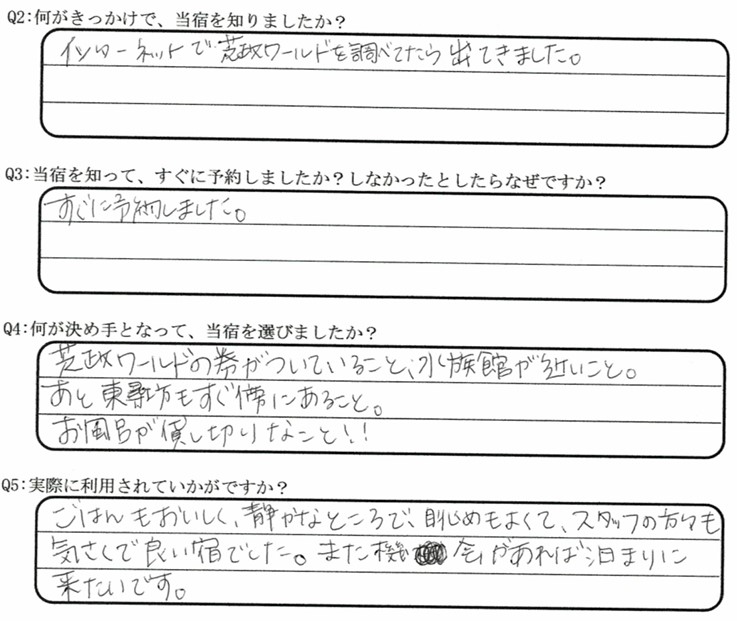 Q2:何がきっかけで、当宿を知りましたか？
インターネットで芝政ワールドを調べてたら出てきました。
Q3:当宿を知って、すぐに予約しましたか？しなかったとしたらなぜですか？
すぐに予約しました。
Q4:何が決め手となって、当宿を選びましたか？
芝政ワールドの券がついていること、水族館が近いこと。
あと東尋坊もすぐ傍にあること。
お風呂が貸し切りなこと！！
Q5:実際に利用されていかがですか？
ごはんもおいしく、静かなところで、眺めもよくて、スタッフの方々も
気さくで良い宿でした。また機会があれば泊まりに
来たいです。